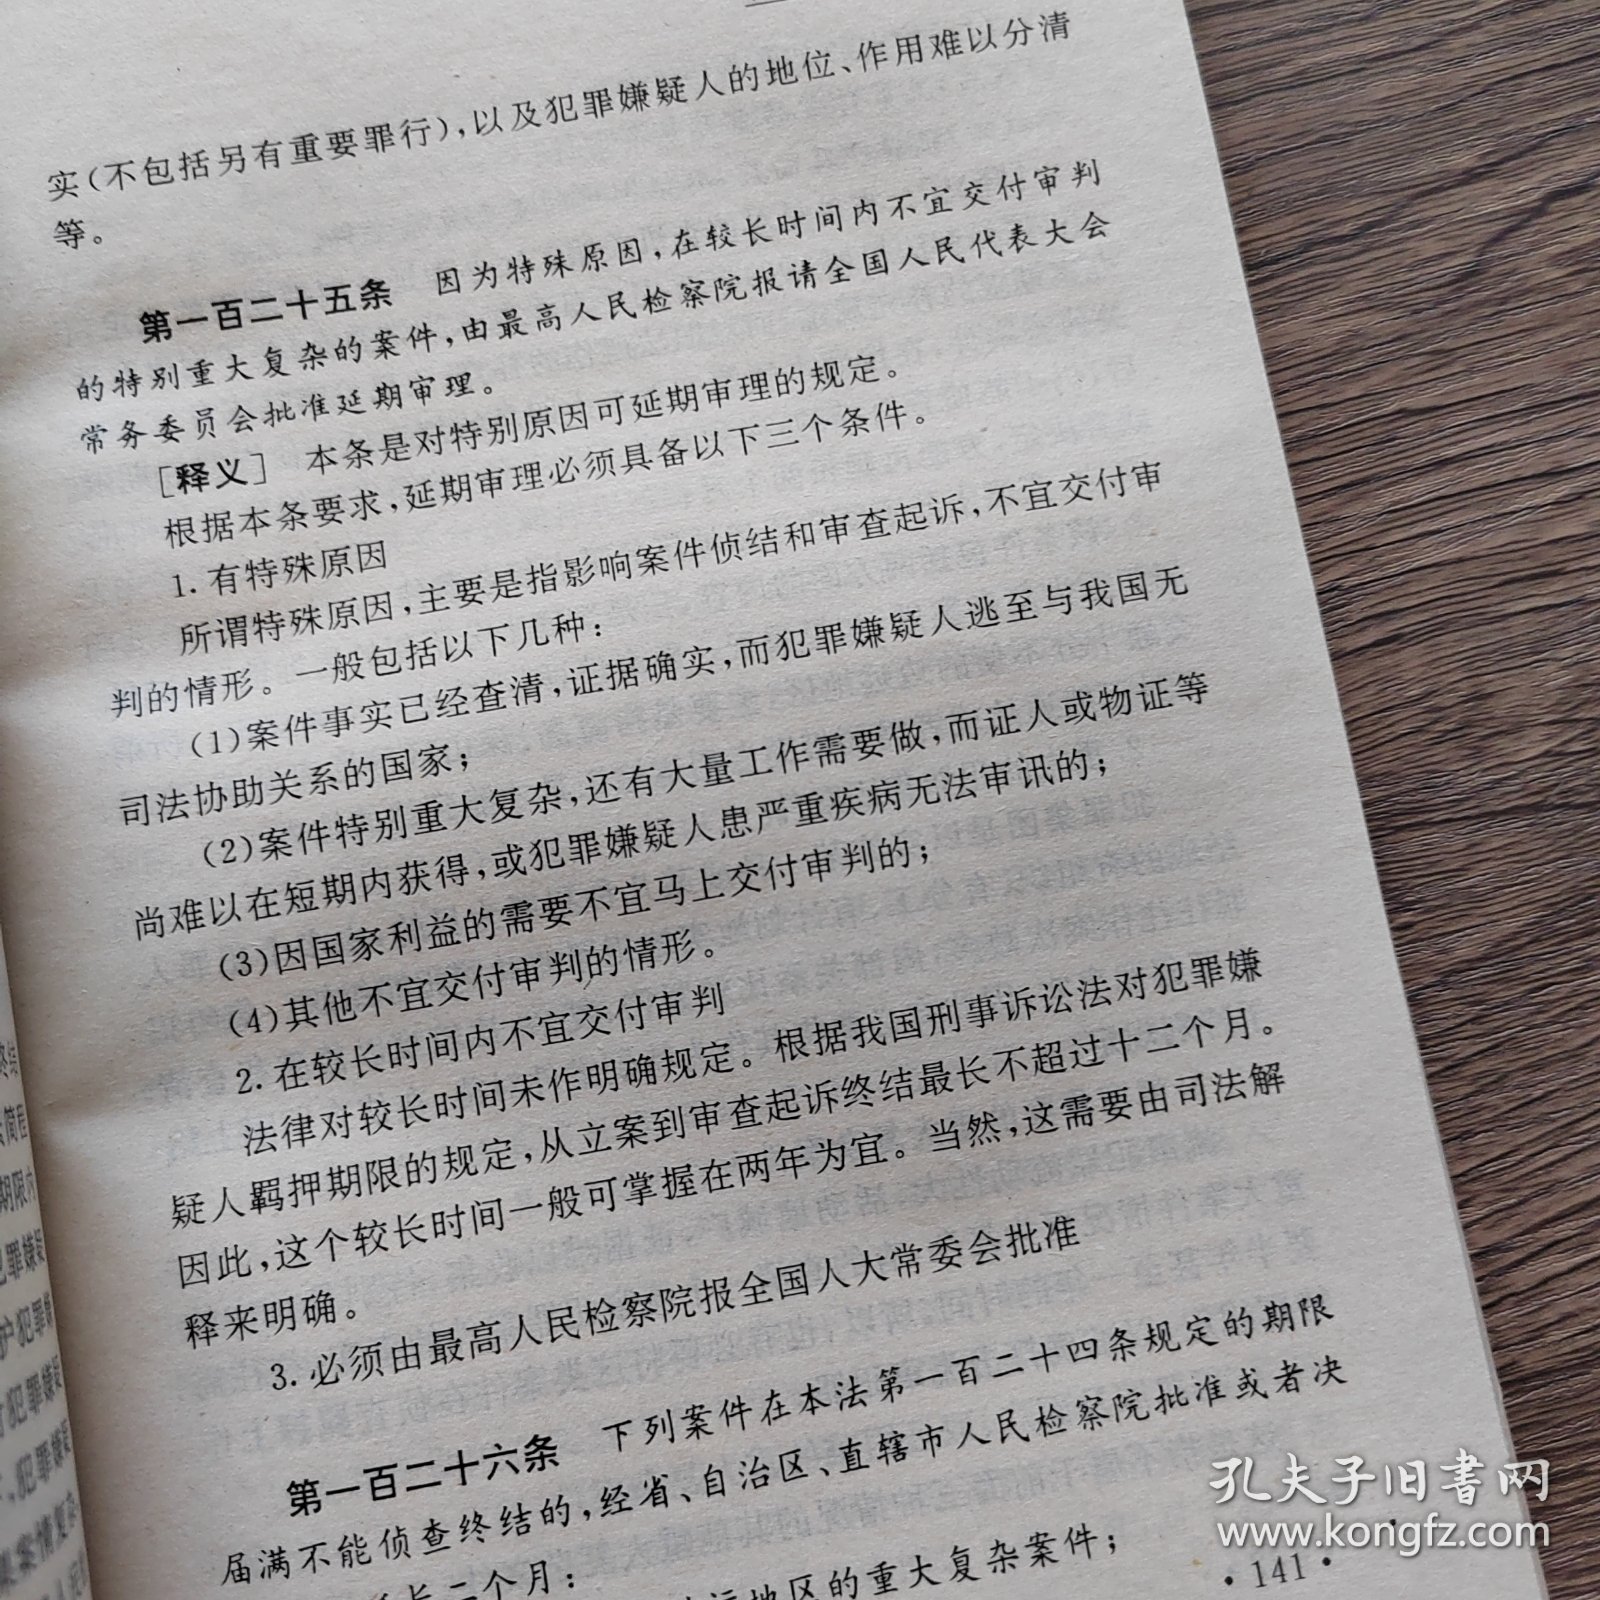 实(不包括另有重要罪行),以及犯罪嫌疑人的地位、作用难以分清
等。
第一百二十五条 因为特殊原因,在较长时间内不宜交付审判
的特别重大复杂的案件,由最高人民检察院报请全国人民代表大会
常务委员会批准延期审理。
[释义] 本条是对特别原因可延期审理的规定。
根据本条要求,延期审理必须具备以下三个条件。
1. 有特殊原因
所谓特殊原因,主要是指影响案件侦结和审查起诉,不宜交付审
判的情形。一般包括以下几种:
(1)案件事实已经查清,证据确实,而犯罪嫌疑人逃至与我国无
司法协助关系的国家;
(2)案件特别重大复杂,还有大量工作需要做,而证人或物证等
尚难以在短期内获得,或犯罪嫌疑人患严重疾病无法审讯的;
(3)因国家利益的需要不宜马上交付审判的;
(4)其他不宜交付审判的情形。
2. 在较长时间内不宜交付审判
法律对较长时间未作明确规定。根据我国刑事诉讼法对犯罪嫌
疑人羁押期限的规定,从立案到审查起诉终结最长不超过十二个月。
因此,这个较长时间一般可掌握在两年为宜。当然,这需要由司法解
释来明确。
3. 必须由最高人民检察院报全国人大常委会批准
第一百二十六条 下列案件在本法第一百二十四条规定的期限
届满不能侦查终结的,经省、自治区、直辖市人民检察院批准或者决
长二个月:
地区的重大复杂案件;
·141·
简程
期限内
犯罪嫌疑
孔夫子旧书网
www.kongfz.com